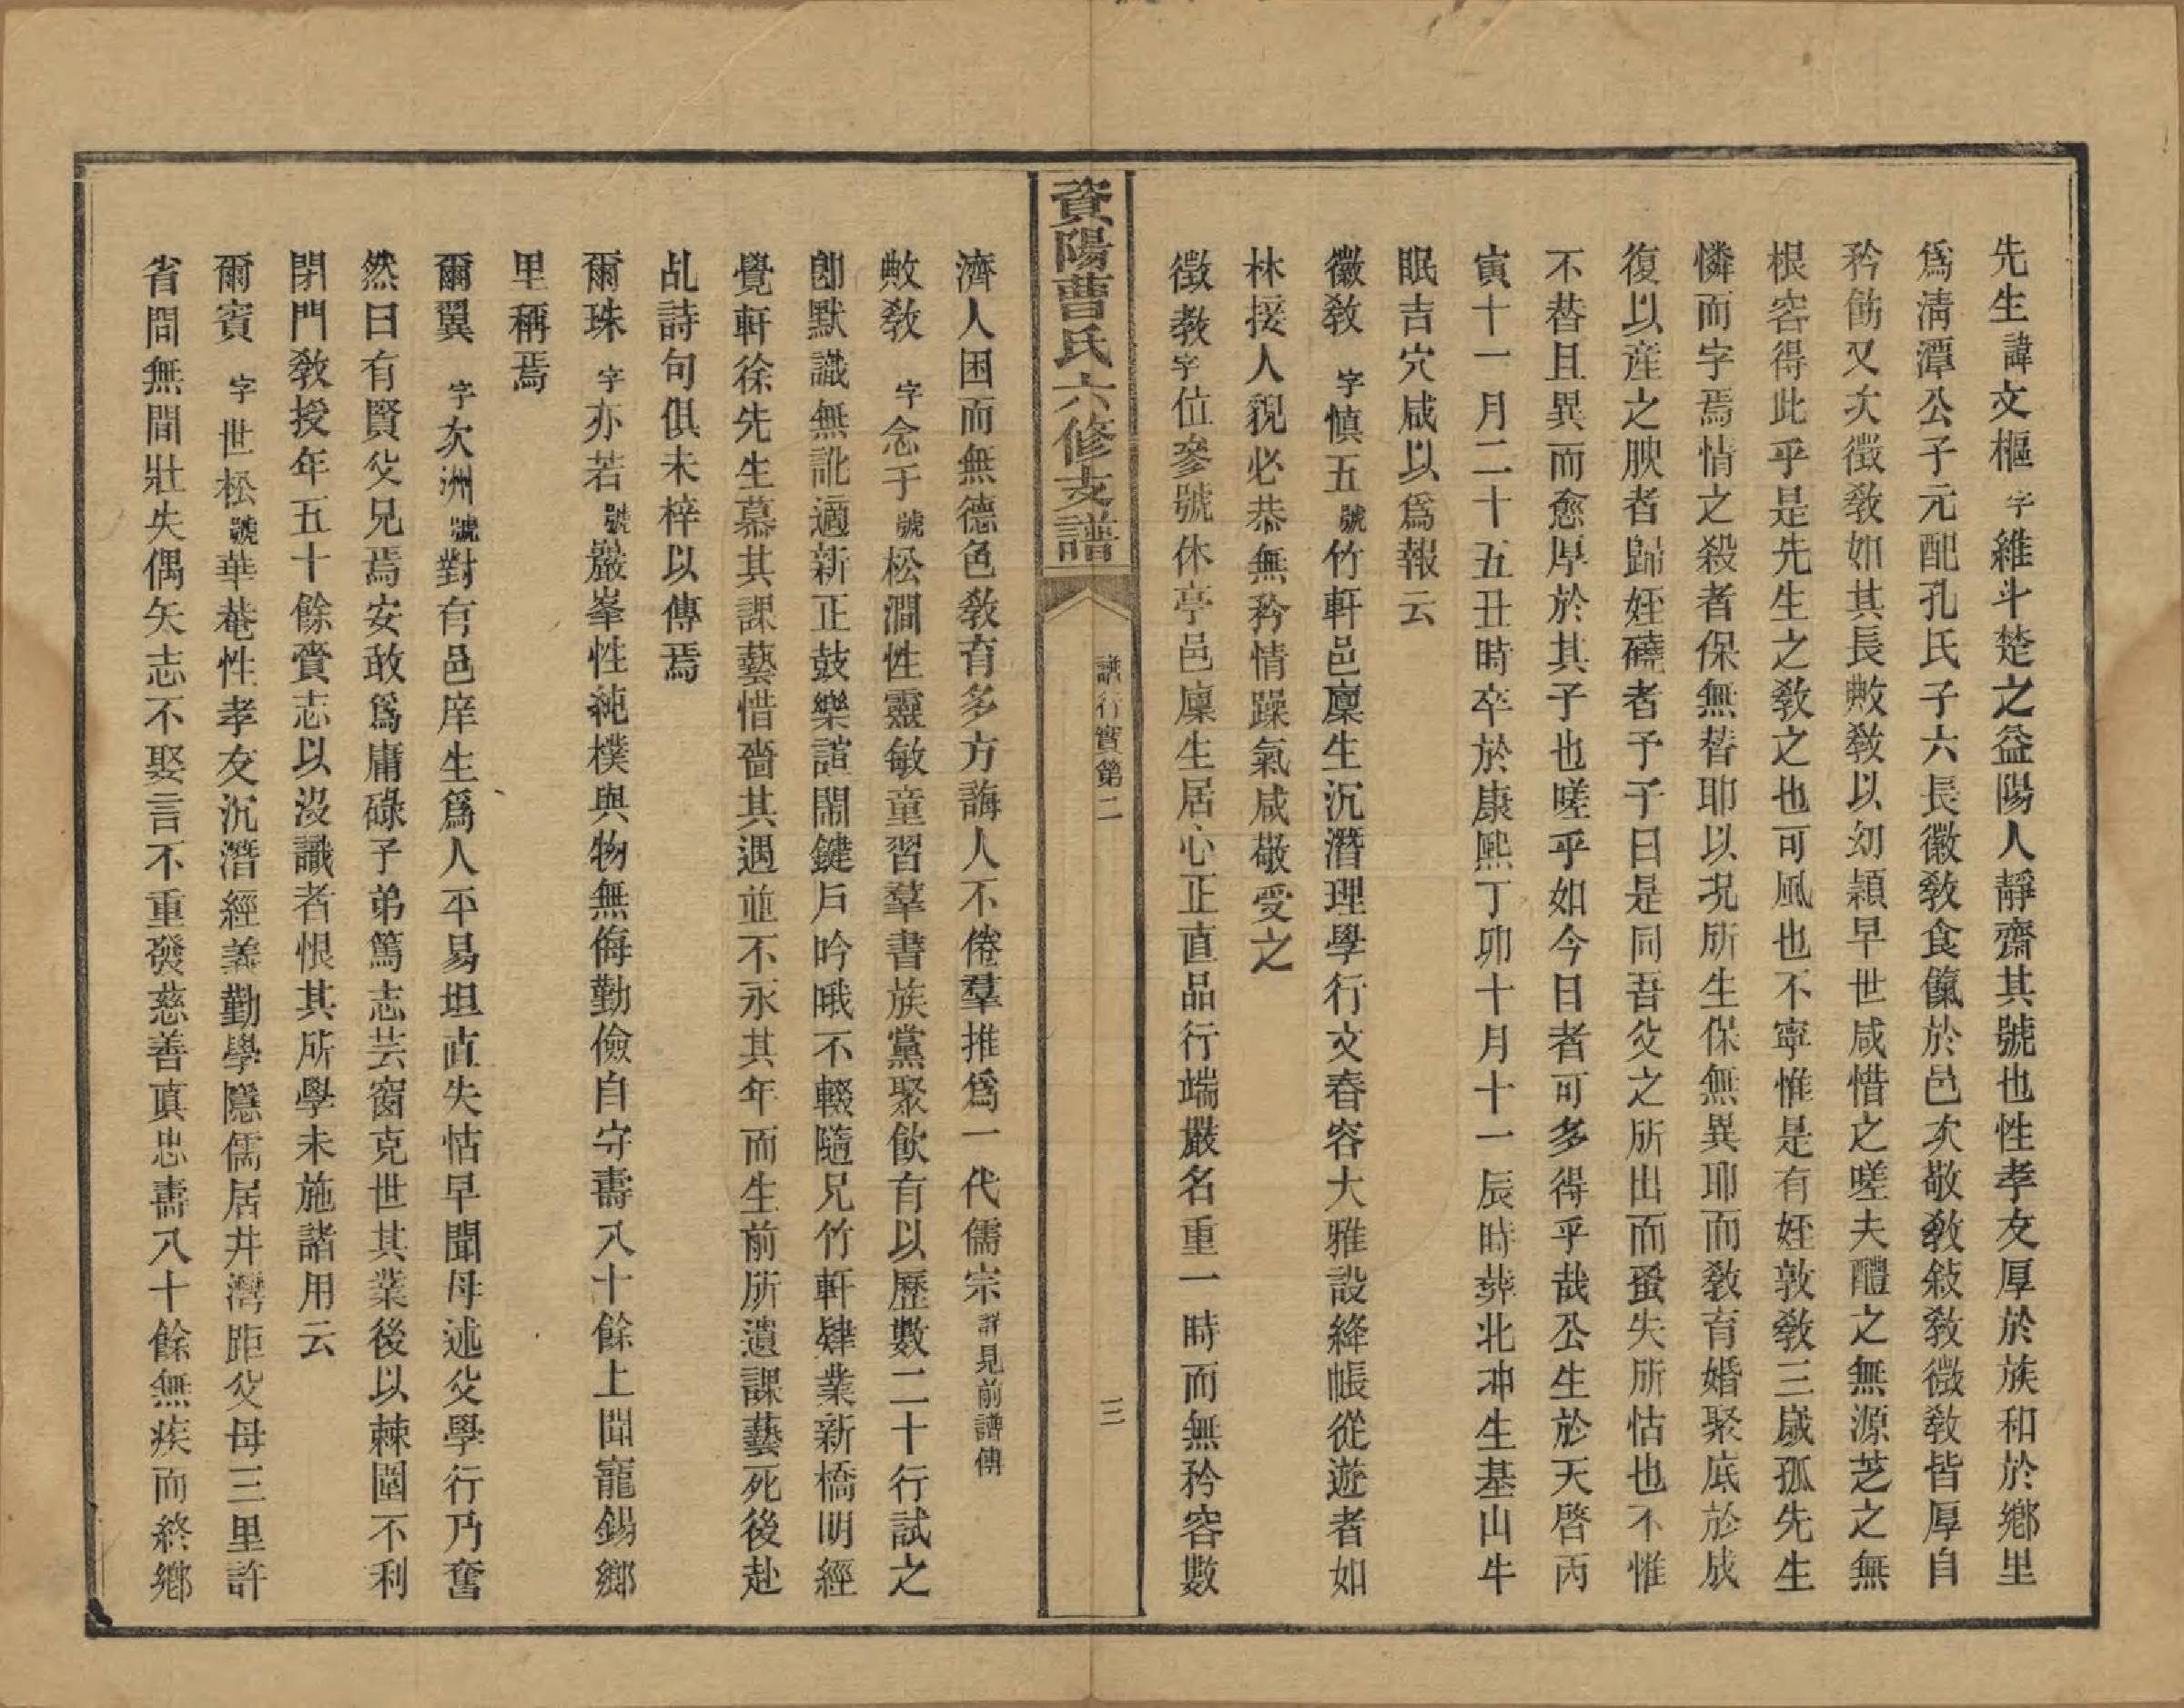 先生諱文樞字維斗楚之益陽人靜齋其號也性孝友厚於族和於鄉里
爲清潭公子元配孔氏子六長徽教食餼於邑次敬教敍教徵教皆厚自
矜飭又次徵教如其長斅教以幼穎早世咸惜之嗟夫醴之無源芝之無
根容得此乎是先生之教之也可風也不寧惟是有姪敦教三歲孤先生
憐而字焉情之殺者保無替耶以況所生保無異耶而教育婚聚底於成
復以産之腴者歸姪磽者予子曰是同吾父之所出而蚤失所怙也不惟
不替且異而愈厚於其子也嗟乎如今日者可多得乎哉公生於天啓丙
寅十一月二十五丑時卒於康熙丁卯十月十一辰時葬北冲生基山牛
眠吉穴咸以爲報云
徽教字慎五號竹軒邑廩生沉潛理學行文春容大雅設絳帳從遊者如
林接人貌必恭無矜情躁氣咸敬受之
徵教字位參號休亭邑廩生居心正直品行端嚴名重一時而無矜容數
資陽曹氏六修支譜
譜行實第二
三
濟人困而無德色教育多方誨人不倦羣推爲一代儒宗詳見前譜傳
斅教字念于號松澗性靈敏童習羣書族黨聚飲有以歷數二十行試之
卽默識無訛適新正鼓樂諠鬧鍵戶吟哦不輟隨兄竹軒肄業新橋明經
覺軒徐先生慕其課藝惜嗇其遇並不永其年而生前所遺課藝死後赴
乩詩句俱未梓以傳焉
爾珠字亦若號嚴峯性純樸與物無侮勤儉自守壽八十餘上聞寵錫鄉
里稱焉
爾翼字次洲號對有邑庠生爲人平易坦直失怙早聞母述父學行乃奮
然曰有賢父兄焉安敢爲庸碌子弟篤志芸窗克世其業後以棘圍不利
閉門教授年五十餘賫志以沒識者恨其所學未施諸用云
爾賓字世松號華菴性孝友沉潛經義勤學隱儒居井灣距父母三里許
省問無間壯失偶矢志不娶言不重發慈善眞忠壽八十餘無疾而終鄉